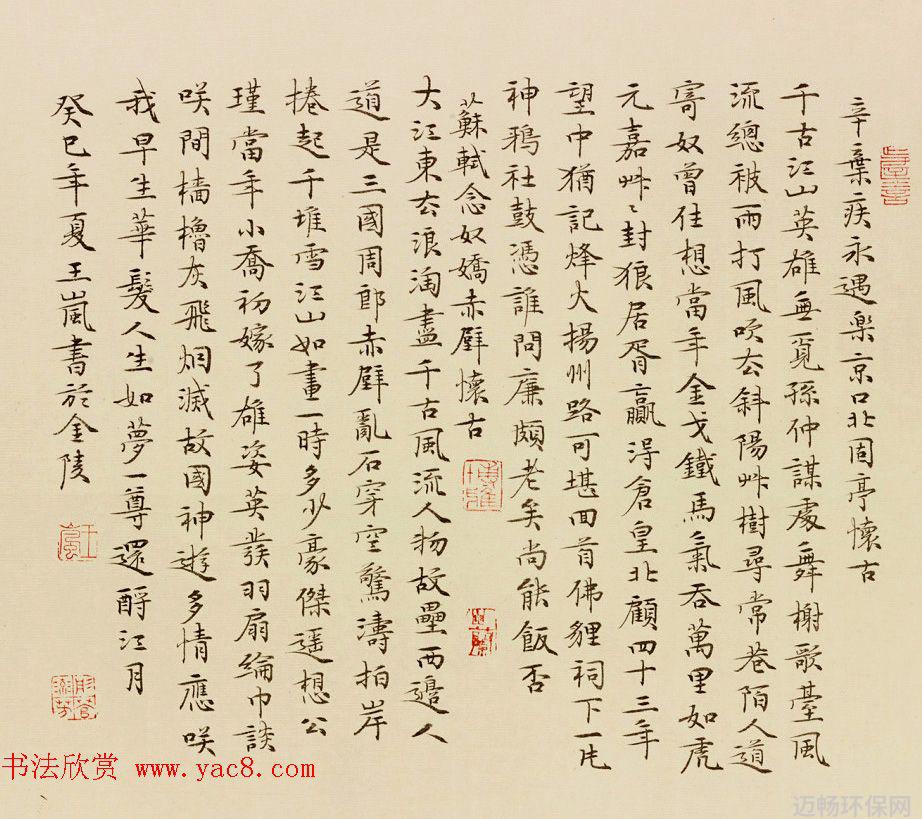 辛棄疾永遇樂京口北固亭懷古
千古江山英雄無覓孫仲謀處舞榭歌臺風
流總被雨打風吹去斜陽艸樹尋常巷陌人道
寄奴曾住想當年金戈鐵馬氣吞萬里如虎
元嘉艸〻封狼居胥贏得倉皇北顧四十三年
望中猶記烽火揚州路可堪回首佛貍祠下一片
神鴉社鼓憑誰問廉頗老矣尚能飯否
蘇軾念奴嬌赤壁懷古
大江東去浪淘盡千古風流人物故壘西邊人
道是三國周郎赤壁亂石穿空驚濤拍岸
捲起千堆雪江山如畫一時多少豪傑遥想公
瑾當年小喬初嫁了雄姿英發羽扇綸巾談
咲間檣櫓灰飛烟滅故國神遊多情應咲
我早生華髮人生如夢一尊還酹江月
癸巳年夏王嵐書於金陵
书法欣赏 www.yac8.com
迈畅环保网